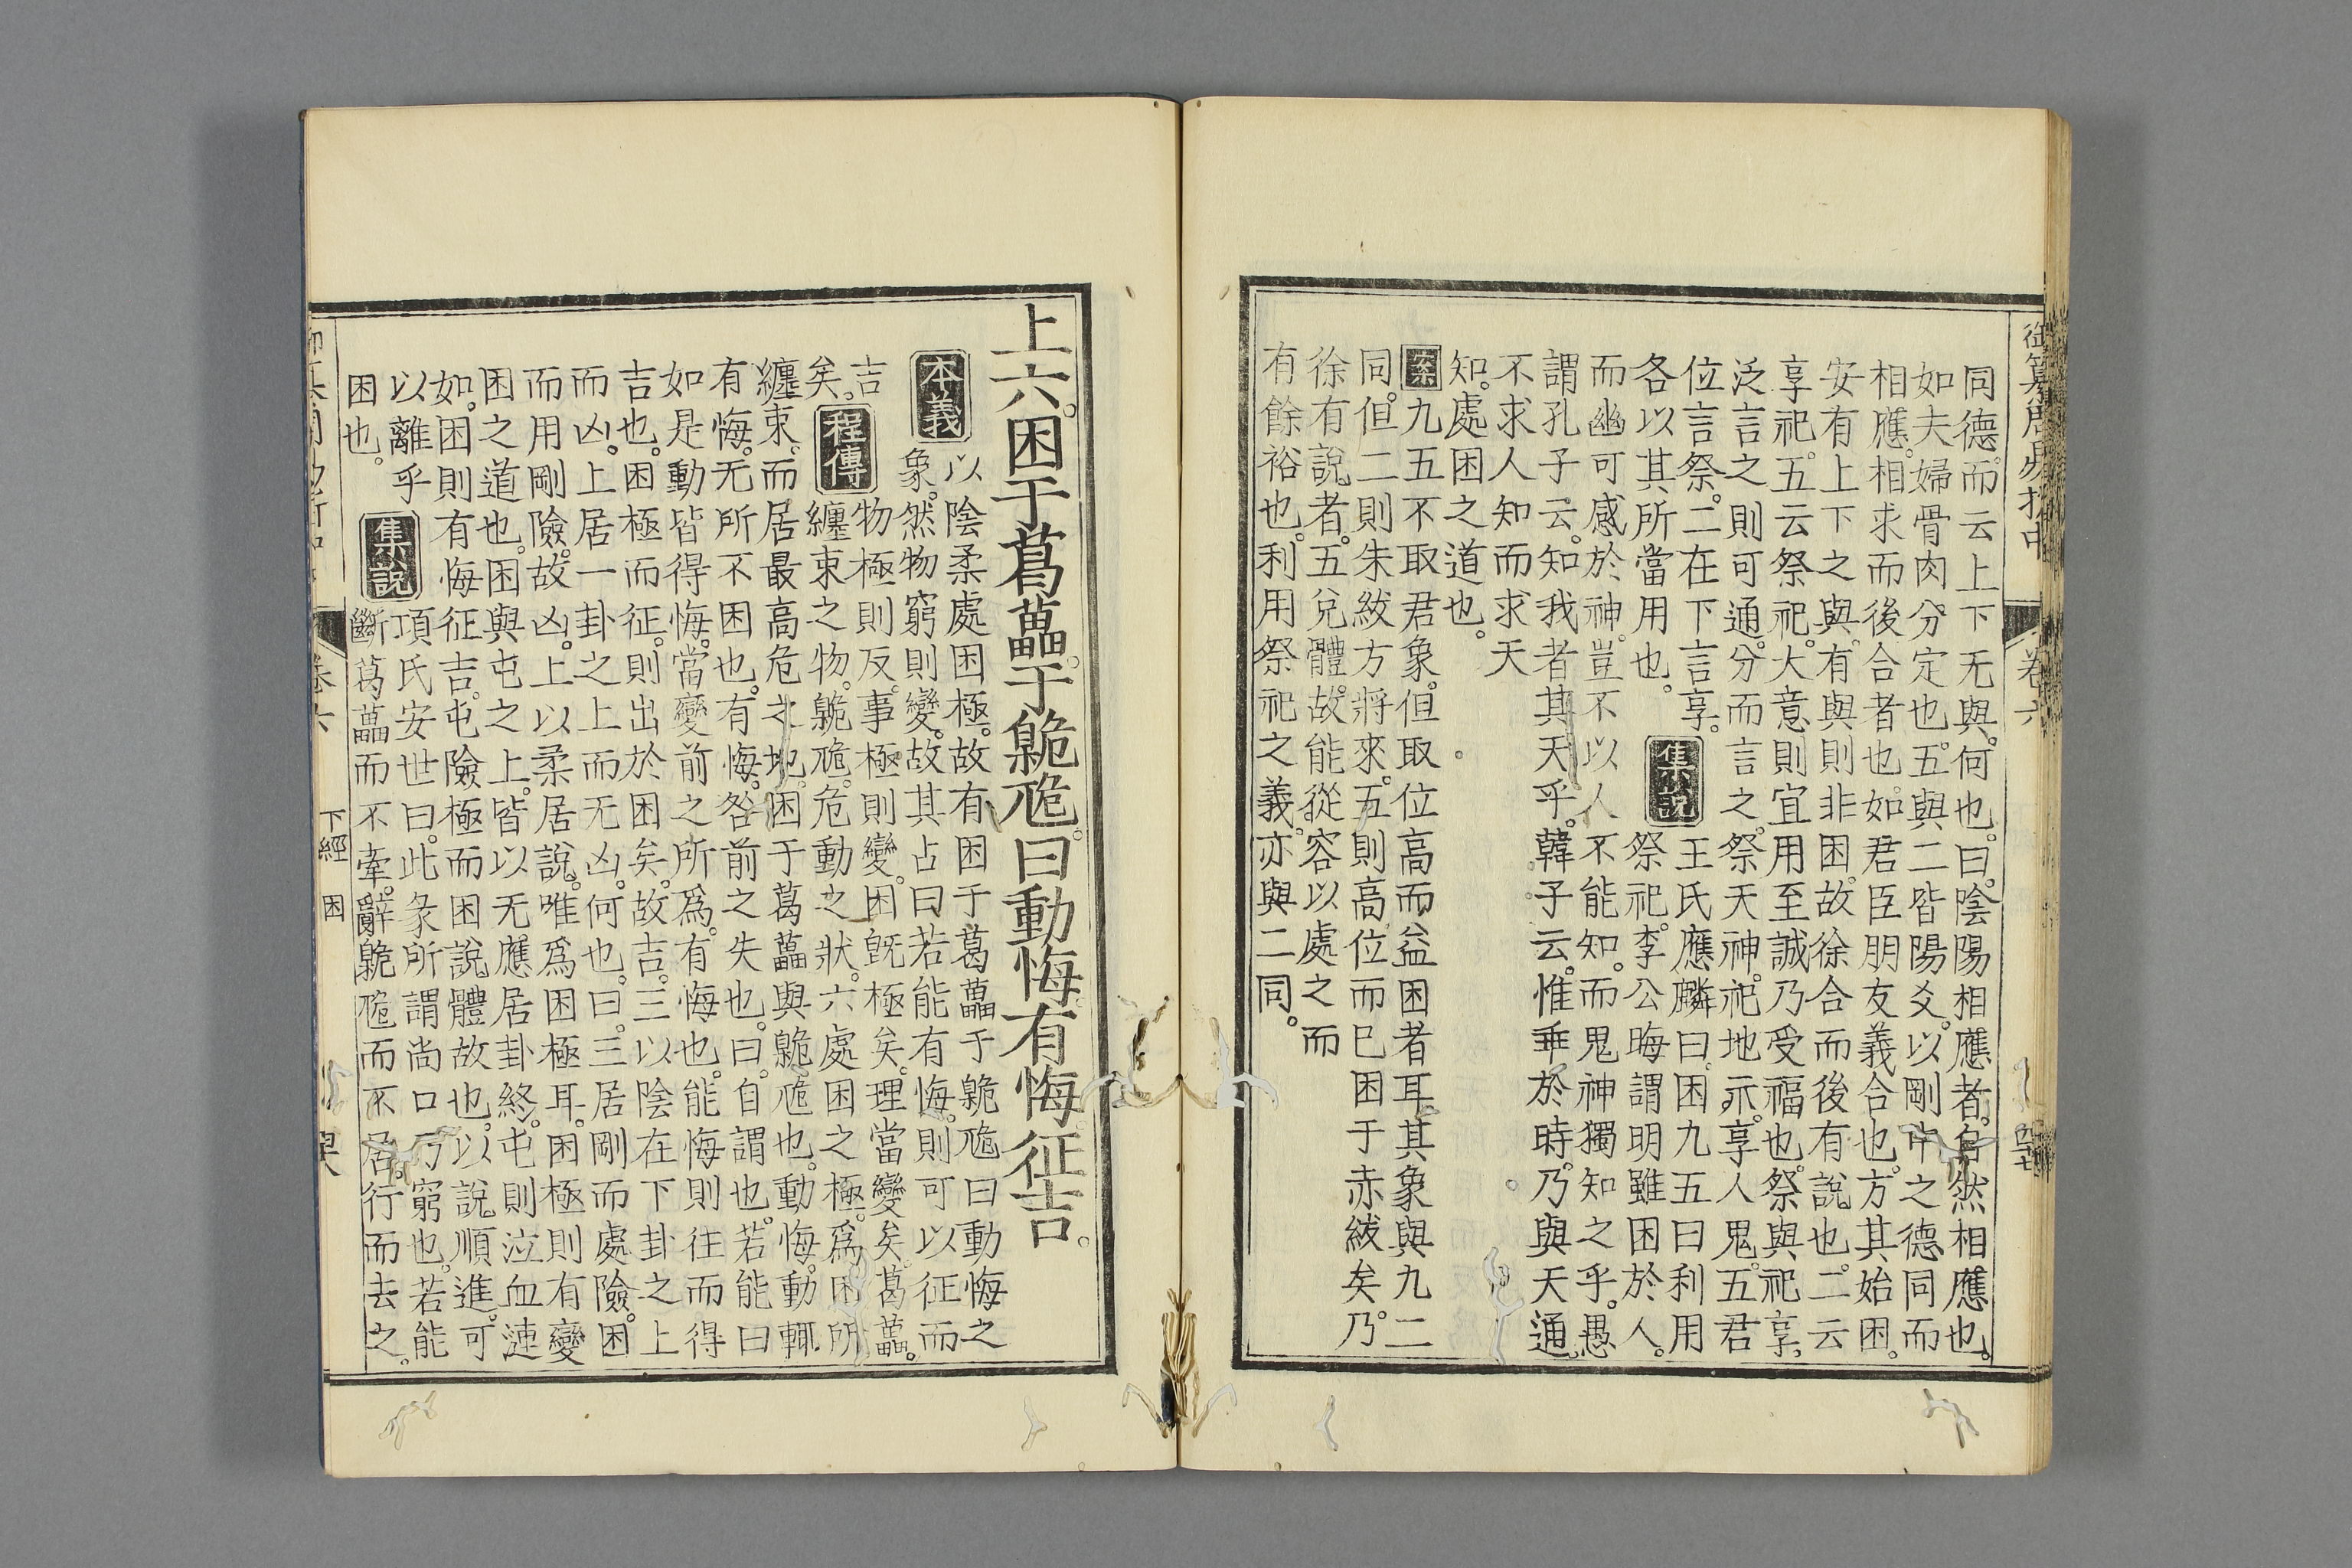 卷六
同德。而云上下无與。何也。曰。陰陽相應者。自然相應也。
如夫婦骨肉分定也。五與二皆陽爻。以剛中之德同而
相應。相求而後合者也。如君臣朋友義合也。方其始困。
安有上下之與。有與則非困。故徐合而後有說也。二云
享祀。五云祭祀。大意則宜用至誠乃受福也。祭與祀享。
泛言之則可通。分而言之。祭天神。祀地示。享人鬼。五君
位言祭。二在下言享。
各以其所當用也。
集說
王氏應麟曰。困九五曰利用
祭祀。李公晦謂明雖困於人。
而幽可感於神。豈不以人不能知。而鬼神獨知之乎。愚
謂孔子云。知我者其天乎。韓子云。惟乖於時。乃與天通。
不求人知而求天
知。處困之道也。
案九五不取君象。但取位高而益困者耳。其象與九二
同。但二則朱紱方將來。五則高位而已困于赤紱矣。乃
徐有說者。五兌體。故能從容以處之。而
有餘裕也。利用祭祀之義。亦與二同。
上六。困于葛藟。于臲卼。曰動悔有悔。征吉。
本義
以陰柔處困極。故有困于葛藟于臲卼曰動悔之
象。然物窮則變。故其占曰。若能有悔。則可以征而
吉
矣。
程傳
物極則反。事極則變。困旣極矣。理當變矣。葛藟。
纏束之物。臲卼。危動之狀。六處困之極。爲困所
纏束。而居最高危之地。困于葛藟與臲卼也。動悔。動輒
有悔。无所不困也。有悔。咎前之失也。曰。自謂也。若能曰
如是動皆得悔。當變前之所爲。有悔也。能悔則往而得
吉也。困極而征。則出於困矣。故吉。三以陰在下卦之上
而凶。上居一卦之上而无凶。何也。曰。三居剛而處險。困
而用剛險。故凶。上以柔居說。唯爲困極耳。困極則有變
困之道也。困與屯之上。皆以无應居卦終。屯則泣血漣
如。困則有悔征吉。屯險極而困說體故也。以說順進。可
以離乎
困也。
集說
項氏安世曰。此彖所謂尚口乃窮也。若能
斷葛藟而不牽。辭臲卼而不居。行而去之。
卷六
下經
困